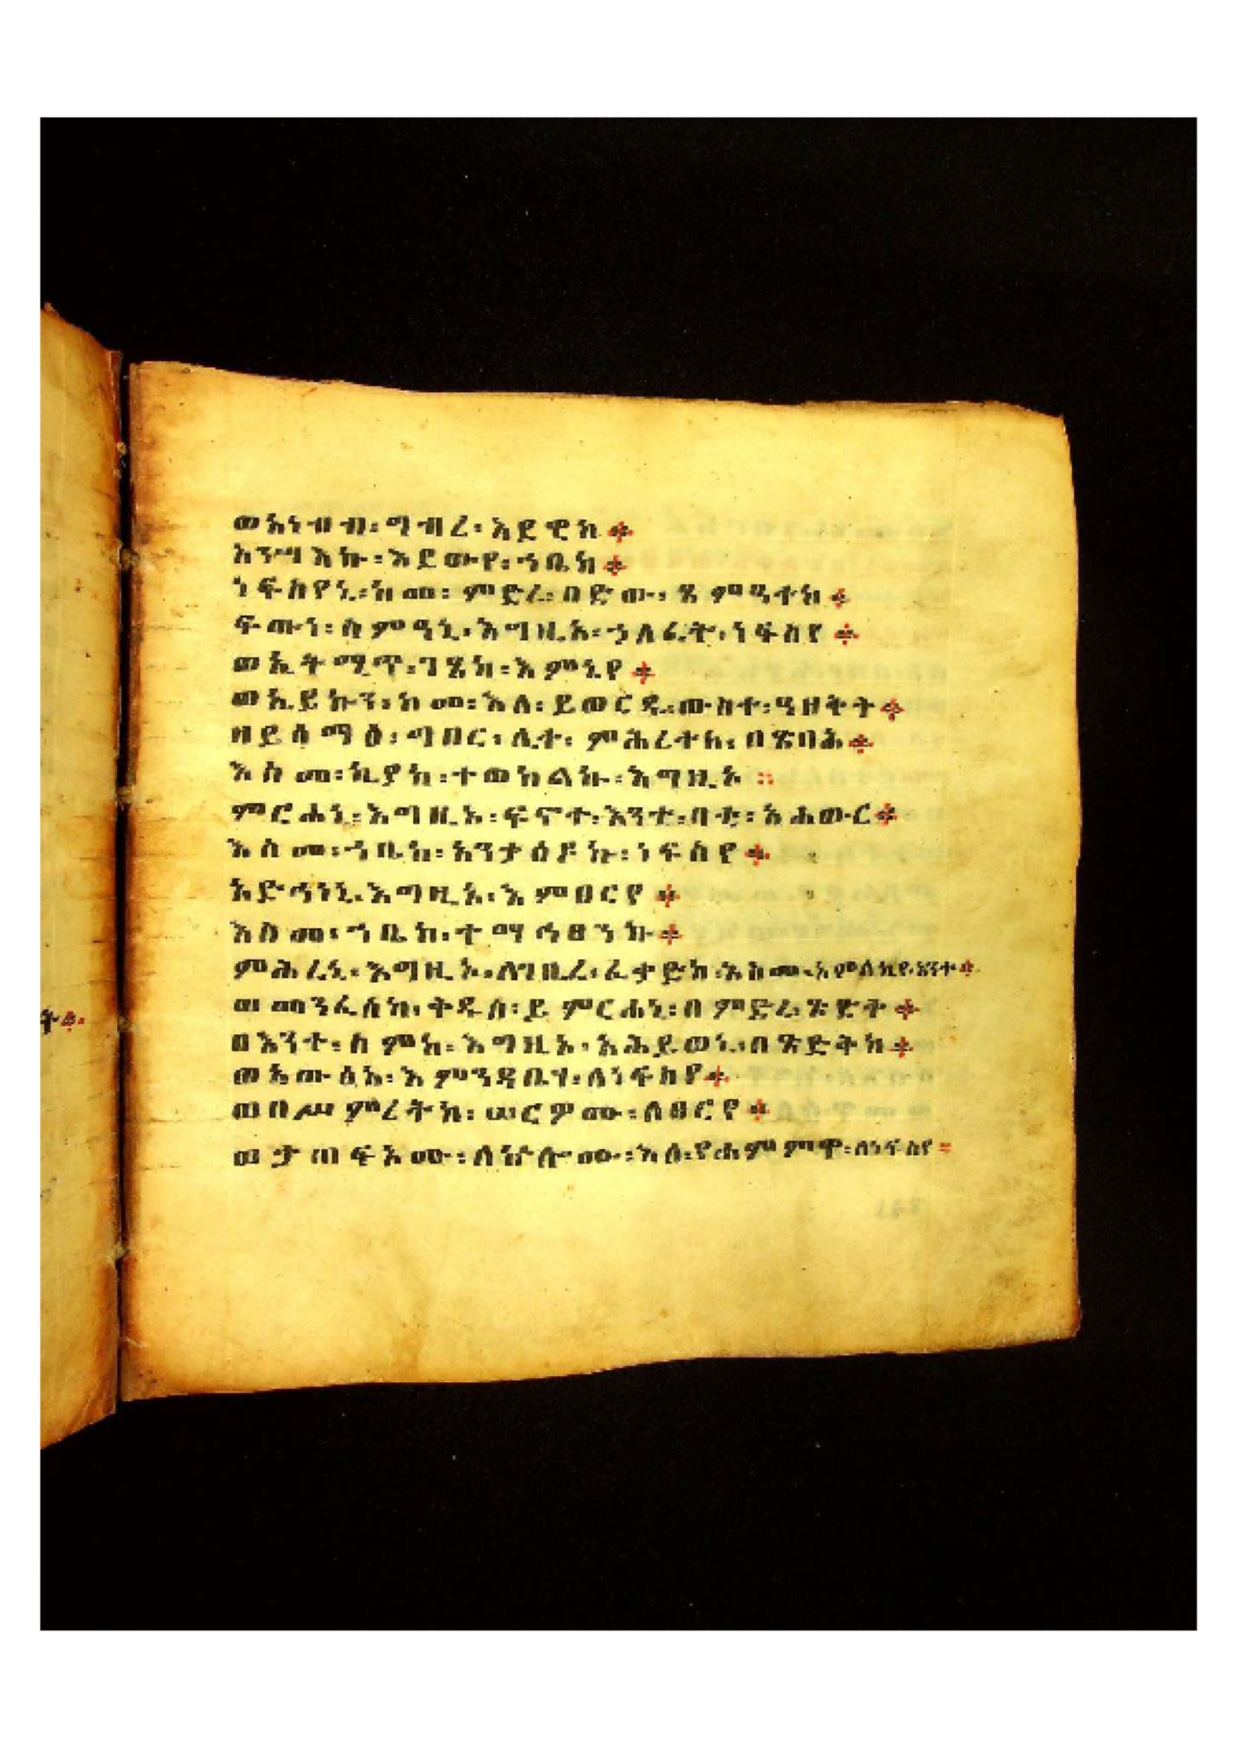 ወአነብብ፡ግብረ፡እደዊከ፨
አንሣእኩ፡እደውየ፡ኀቤከ፨
ነፍስየኒ፡ከመ፡ምድረ፡በድው፡ጸምዓተከ፨
ፍጡነ፡ስምዓኒ፡እግዚኦ፡ኃለፈት፡ነፍስየ፨
ወኢትሚጥ፡ገጸከ፡እምኔየ፨
ወኢይኩን፡ከመ፡እለ፡ይወርዱ፡ውስተ፡ዓዘቅት፨
ዘይሰማዕ፡ግበር፡ሊተ፡ምሕረተከ፡በጽባሕ፨
እስመ፡ኪያከ፡ተወከልኩ፡እግዚኦ፡፡
ምርሐኒ፡እግዚኦ፡ፍኖተ፡እንተ፡ባቲ፡አሐውር፨
እስመ፡ኀቤከ፡አንቃዕዶኩ፡ነፍስየ፨
አድኅነኒ፡እግዚኦ፡እምፀርየ፨
እስመ፡ኀቤከ፡ተማኅፀንኩ፨
ምሕረኒ፡እግዚኦ፡ለገቢረ፡ፈቃድከ፡እስመ፡አምላኪየ፡አንተ፨
ወመንፈስከ፡ቅዱስ፡ይምርሐኒ፡በምድረ፡ጽድቅ፨
በእንተ፡ስምከ፡እግዚኦ፡አሕይወኒ፡በጽድቅከ፨
ወአውፅአ፡እምንዳቤሃ፡ለነፍስየ፨
ወበሥምረትከ፡ሠርዎሙ፡ለፀርየ፨
ወታጠፍኦሙ፡ለኵሎሙ፡እለ፡የሐምምዋ፡ለነፍስየ፡፡